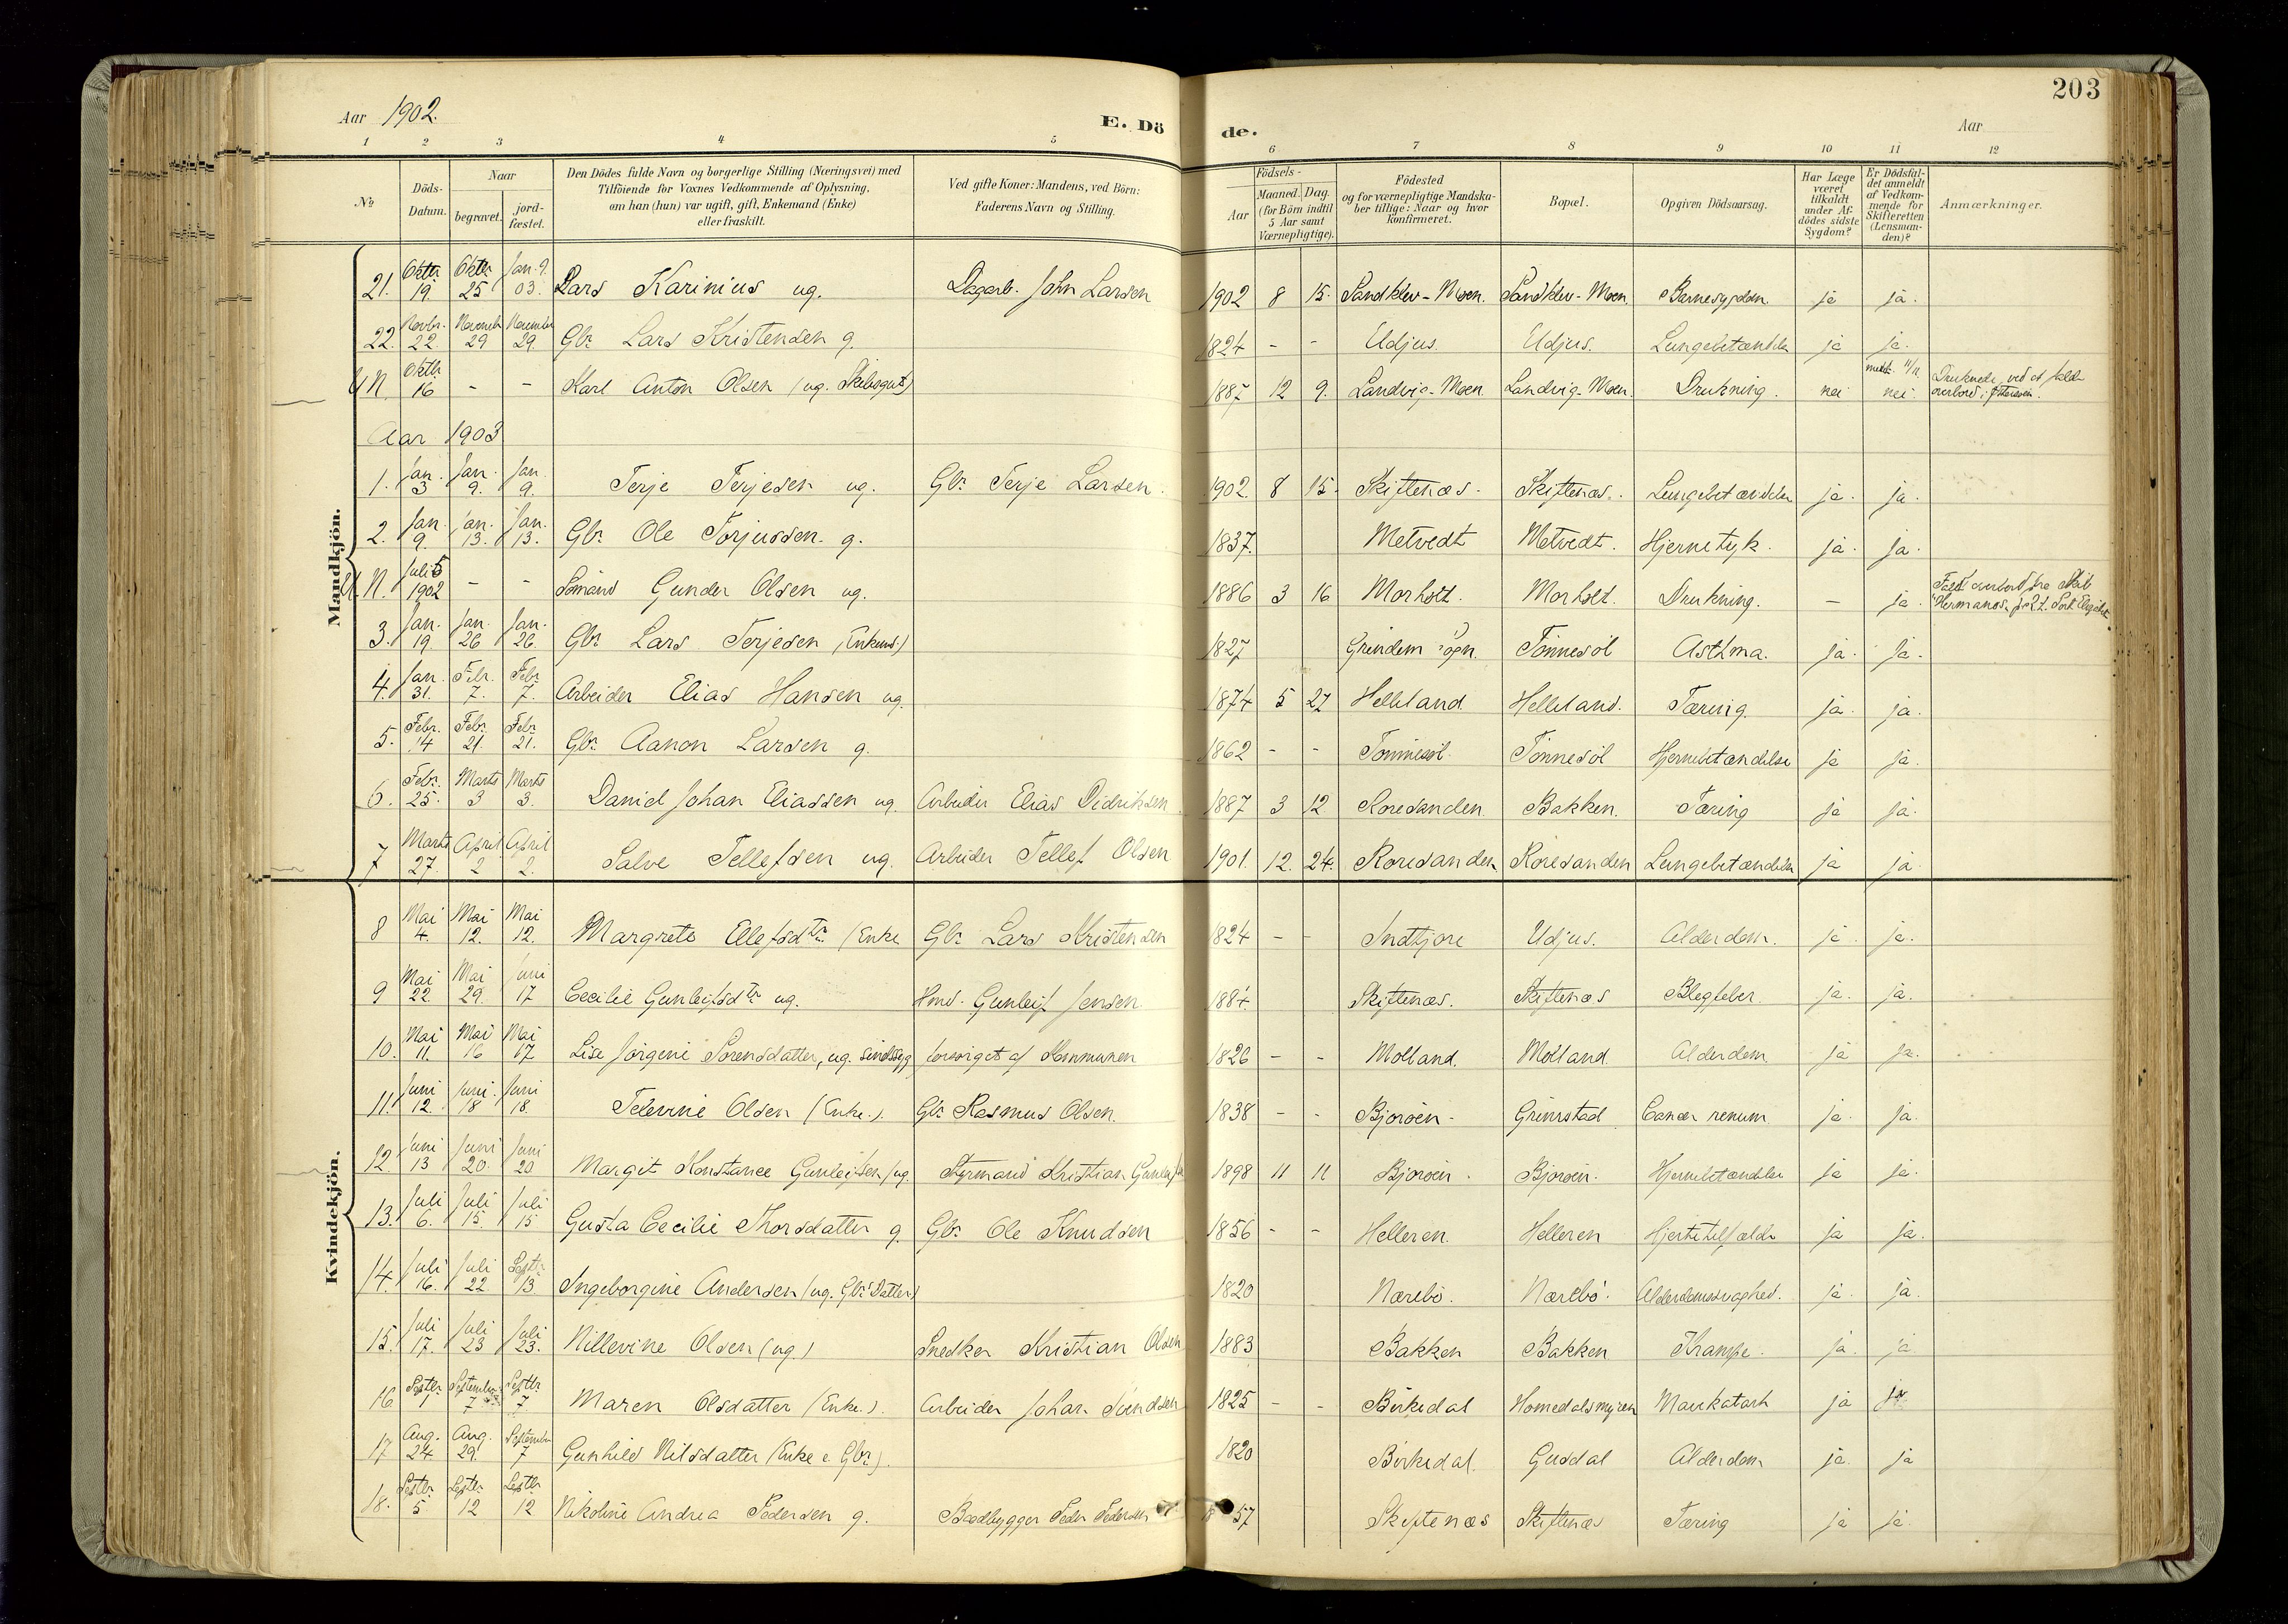 203
Aar 1902.
E. Dö de.
Aar
1 2 3 4 5 6 7 8 9 10 11 12
No
Döds-Datum.
Naar
begravet.
jord-fæstet.
Den Dödes fulde Navn og borgerlige Stilling (Næringsvei) med
Tilföiende for Voxnes Vedkommende af Oplysning,
om han (hun) var ugift, gift, Enkemand (Enke)
eller fraskilt.
Ved gifte Koner: Mandens, ved Börn:
Faderens Navn og Stilling.
Födsels-
Aar
Maaned. Dag.
(for Börn indtil
5 Aar samt
Værnepligtige).
Födested
og for værnepligtige Mandska-
ber tillige: Naar og hvor
konfirmeret.
Bopæl.
Opgiven Dödsaarsag.
Har Læge
været
tilkaldt
under Af-
dödes sidste
Sygdom?
Er Dödsfal-
det anmeldt
af Vedkom-
mende for
Skifteretten
(Lensman-
den)?
Anmærkninger.
Mandkjön.
21. Oktbr 19. Oktbr 25 Jan. 9. 03. Lars Karinius ug. Dagarb. John Larsen 1902 8 15. Sandklev-Moen. Sandklev-Moen. Barnesygdom ja ja.
22. Novbr. 22. Novemb 29 November 29. Gbr. Lars Kristensen g. 1824 - - Udjus. Udjus. Lungebetændelse ja ja.
U N. Oktbr 16 - - Karl Anton Olsen (ug. Skibsgut) 1887 12 9. Landvig-Moen. Landvig-Moen. Drukning. nei nei. Druknede ved at falde overbord i
Aar 1903
1. Jan. 3 Jan. 9. Jan. 9. Terje Terjesen ug. Gbr. Terje Larsen. 1902. 8 15. Skiftenæs. Skiftenæs. Lungebetændelse ja. ja.
2. Jan. 9. Jan. 13. Jan. 13. Gbr. Ole Torjussen. g. 1837. Metvedt Metvedt. Hjernetyk. ja. ja.
U. N. Juli 5 1902 - - Sömand Gunder Olsen ug. 1886 3 16 Morholt. Morholt. Drukning. - ja. Faldt overbord fra Skib "Hermanos"
3. Jan. 19. Jan. 26 Jan. 26. Gbr. Lars Terjesen (Enkemd.) 1827 Grindem Sogn. Tönnesöl Asthma. ja. ja.
4. Jan. 31. Febr. 7. Febr 7. Arbeider Elias Hansen ug. 1874 5 27 Helleland Helleland. Tæring. ja. ja.
5. Febr. 14 Febr. 21. Febr. 21. Gbr. Aanon Larsen g. 1862 - - Tönnesöl. Tönnesöl Hjernebetændelse ja ja.
6. Febr. 25. Marts 3 Marts 3. Daniel Johan Eliassen ug. Arbeider Elias Didriksen. 1887 3 12 Roresanden. Bakken. Tæring ja ja.
7 Marts 27. April 2 April 2. Salve Tellefsen ug. Arbeider Tellef Olsen 1901. 12. 24. Roresanden Roresanden Lungebetændelse ja ja
Kvindekjön.
8 Mai 4. Mai 12. Mai 12. Margrete Ellefsdtr. (Enke Gbr. Lars Kristensen 1824 - - Indtjore Udjus. Alderdom. ja ja.
9 Mai 22. Mai 29. Juni 17 Cecilie Gunleifsdtr ug. Hmd. Gunleif Jensen 1884. Skiftenæs. Skiftenæs Blegfeber. ja. ja.
10. Mai 11. Mai 16 Mai 17 Lise Jörgine Sörensdatter, ug. sindssyg forsörget af Kommunen 1826 - - Molland. Molland. Alderdom ja ja.
11. Juni 12. Juni. 18 Juni 18. Televine Olsen (Enke.). Gbr Rasmus Olsen. 1838 - - Bjoroen. Grimstad Cancer renum ja. ja.
12. Juni 13 Juni 20. Juni 20 Margit Konstance Gunleifsen (ug. Styrmand Kristian 1898 11 11 Bjoroen. Bjoroen. Hjernebetændelse ja ja.
13. Juli 6. Juli 15. Juli 15 Gusta Cecilie Thorsdatter g. Gbr. Ole Knudsen 1856 - - Helleren. Helleren Hjertetilfælde ja ja.
14. Juli 16. Juli 22 Septbr. 13. Ingeborgine Andersen (ug. Gbr's Datter) 1820 Nærebö. Nærebö. Alderdomssvaghed. ja. ja.
15. Juli 17. Juli 23 Juli 23. Nillevine Olsen (ug.) Snedker Kristian Olsen 1883 Bakken Bakken Krampe. ja. ja
16 Septbr. 1 September 7 Septbr. 7 Maren Olsdatter (Enke.). Arbeider Johan 1825 - - Birkedal Homedalsmyren Mavekatarh ja ja
17 Aug. 24 Aug. 29. September 7 Gunhild Nilsdatter (Enke e. Gbr.). 1820 Birkedal. Gusdal Alderdom ja. ja
18. Septbr. 5 Septbr. 12 Septbr 12 Nikoline Andrea Pedersen g. Baadbygger Peder Pedersen 57 Skiftenæs Skiftenæs Tæring ja ja.